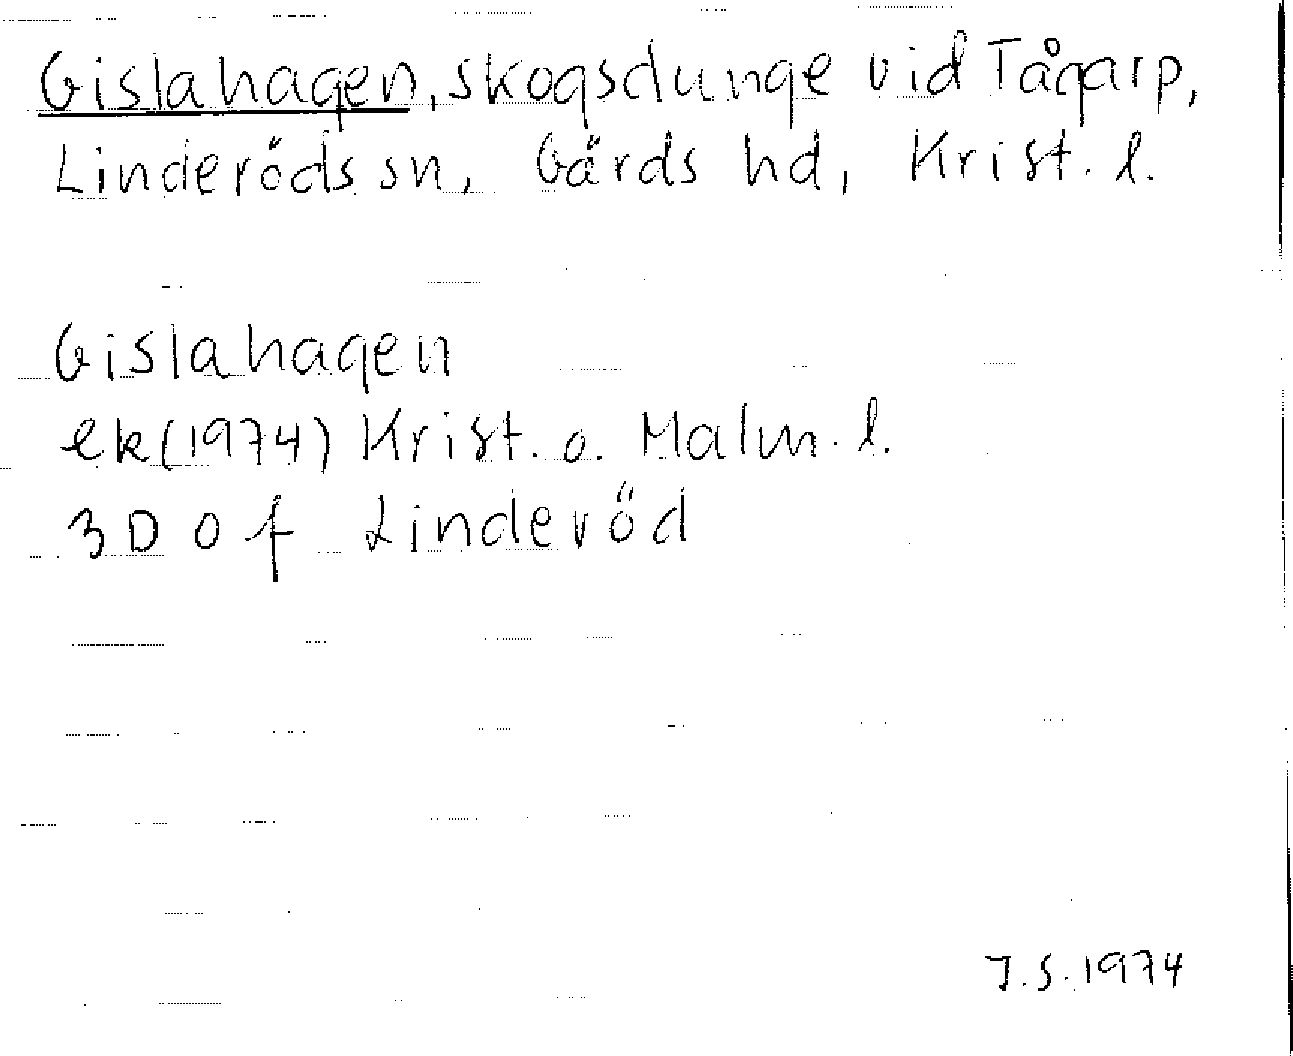 Gislahagen, skogsdunge vid Tågarp,
Linderöds sn, Gärds hd, Krist. l.
Gislahagen
ek (1974) Krist. o. Malm. l.
3D 0f Linderöd
J.S. 1974